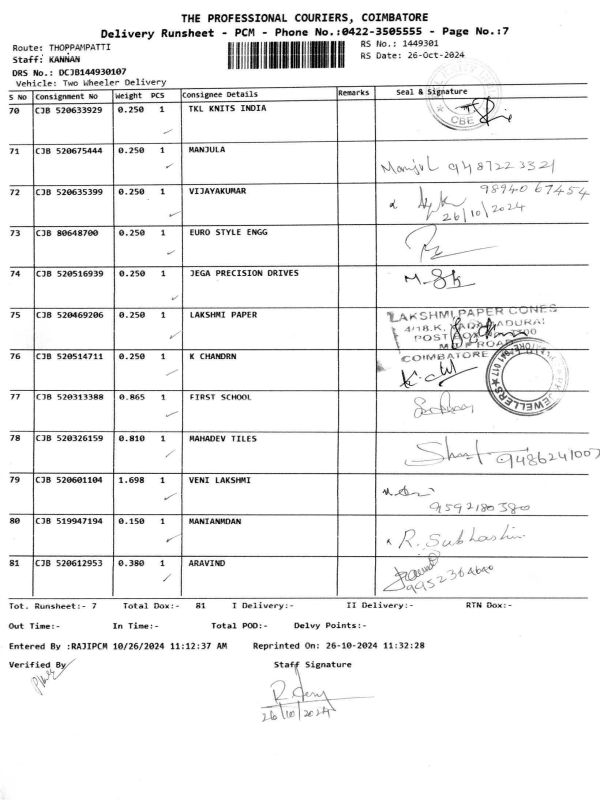 THE PROFESSIONAL COURIERS, COIMBATORE
Delivery Runsheet - PCM - Phone No.:0422-3505555 - Page No.:7
Route: THOPPAMPATTI
RS No.: 1449301
Staff: KANNAN
RS Date: 26-Oct-2024
DRS No.: DCJB144930107
Vehicle: Two Wheeler Delivery
S No Consignment No Weight PCS Consignee Details Remarks Seal & Signature
70 CJB 520633929 0.250 1 TKL KNITS INDIA
CBE
71 CJB 520675444 0.250 1 MANJULA
Manjul 9487223321
72 CJB 520635399 0.250 1 VIJAYAKUMAR
9894067454
26/10/2024
73 CJB 80648700 0.250 1 EURO STYLE ENGG
74 CJB 520516939 0.250 1 JEGA PRECISION DRIVES
75 CJB 520469206 0.250 1 LAKSHMI PAPER
LAKSHMI PAPER CONES
COIMBATORE
76 CJB 520514711 0.250 1 K CHANDRN
JEWELLERS
77 CJB 520313388 0.865 1 FIRST SCHOOL
78 CJB 520326159 0.810 1 MAHADEV TILES
9486241007
79 CJB 520601104 1.698 1 VENI LAKSHMI
9592180380
80 CJB 519947194 0.150 1 MANIANMDAN
R. Subhashin
81 CJB 520612953 0.380 1 ARAVIND
Tot. Runsheet:- 7 Total Dox:- 81 I Delivery:- II Delivery:- RTN Dox:-
Out Time:- In Time:- Total POD:- Delvy Points:-
Entered By :RAJIPCM 10/26/2024 11:12:37 AM Reprinted On: 26-10-2024 11:32:28
Verified By Staff Signature
26/10/2024